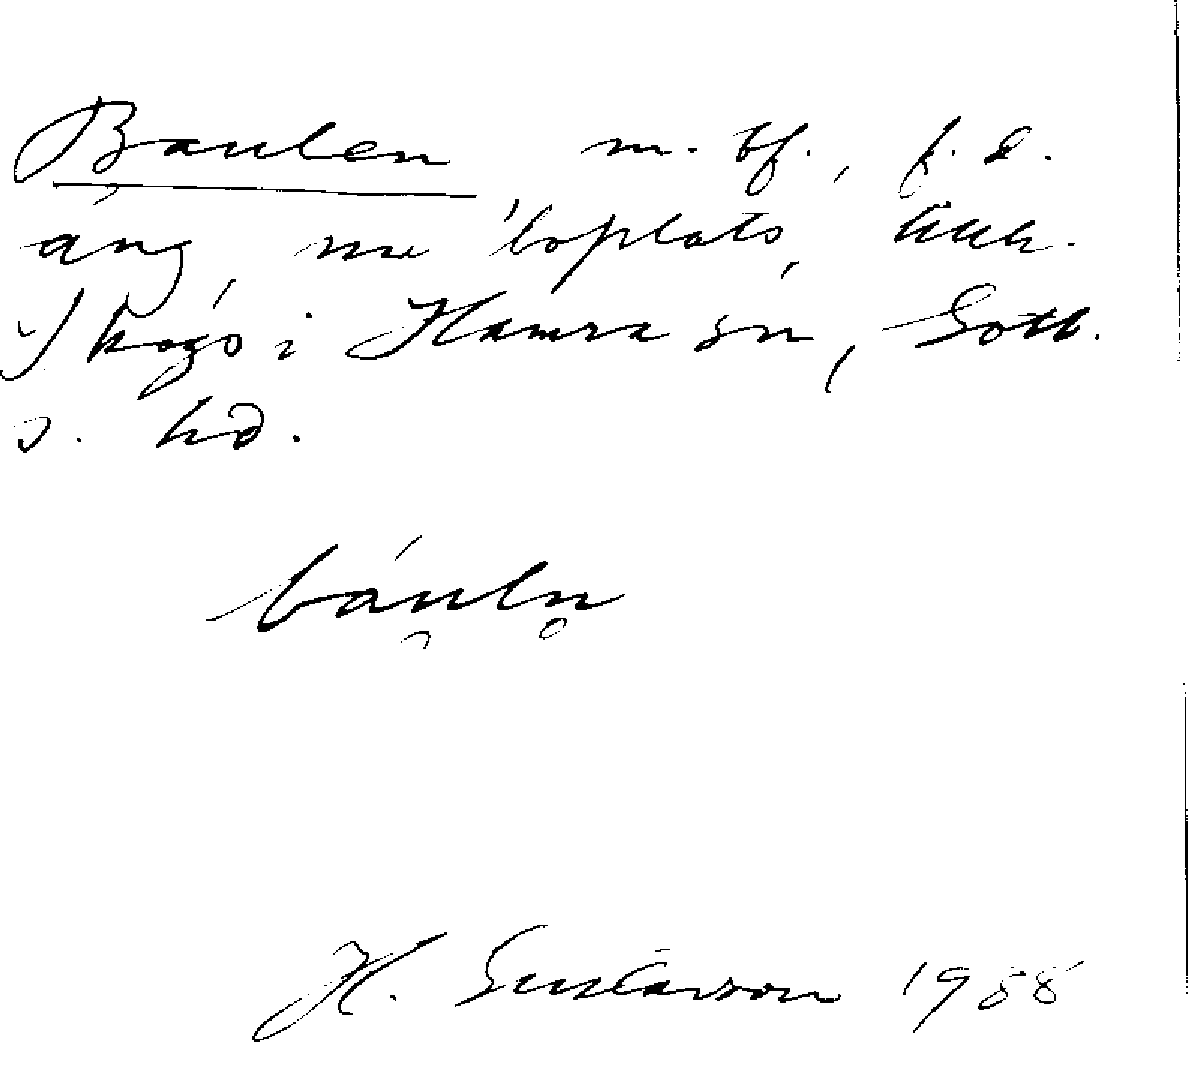 Baulen m. bf., f. d.
äng, nu boplats,
Skogs i Hamra sn, Gotl.
s. hd.
báu̯ln̥
H. Gustavson 1958